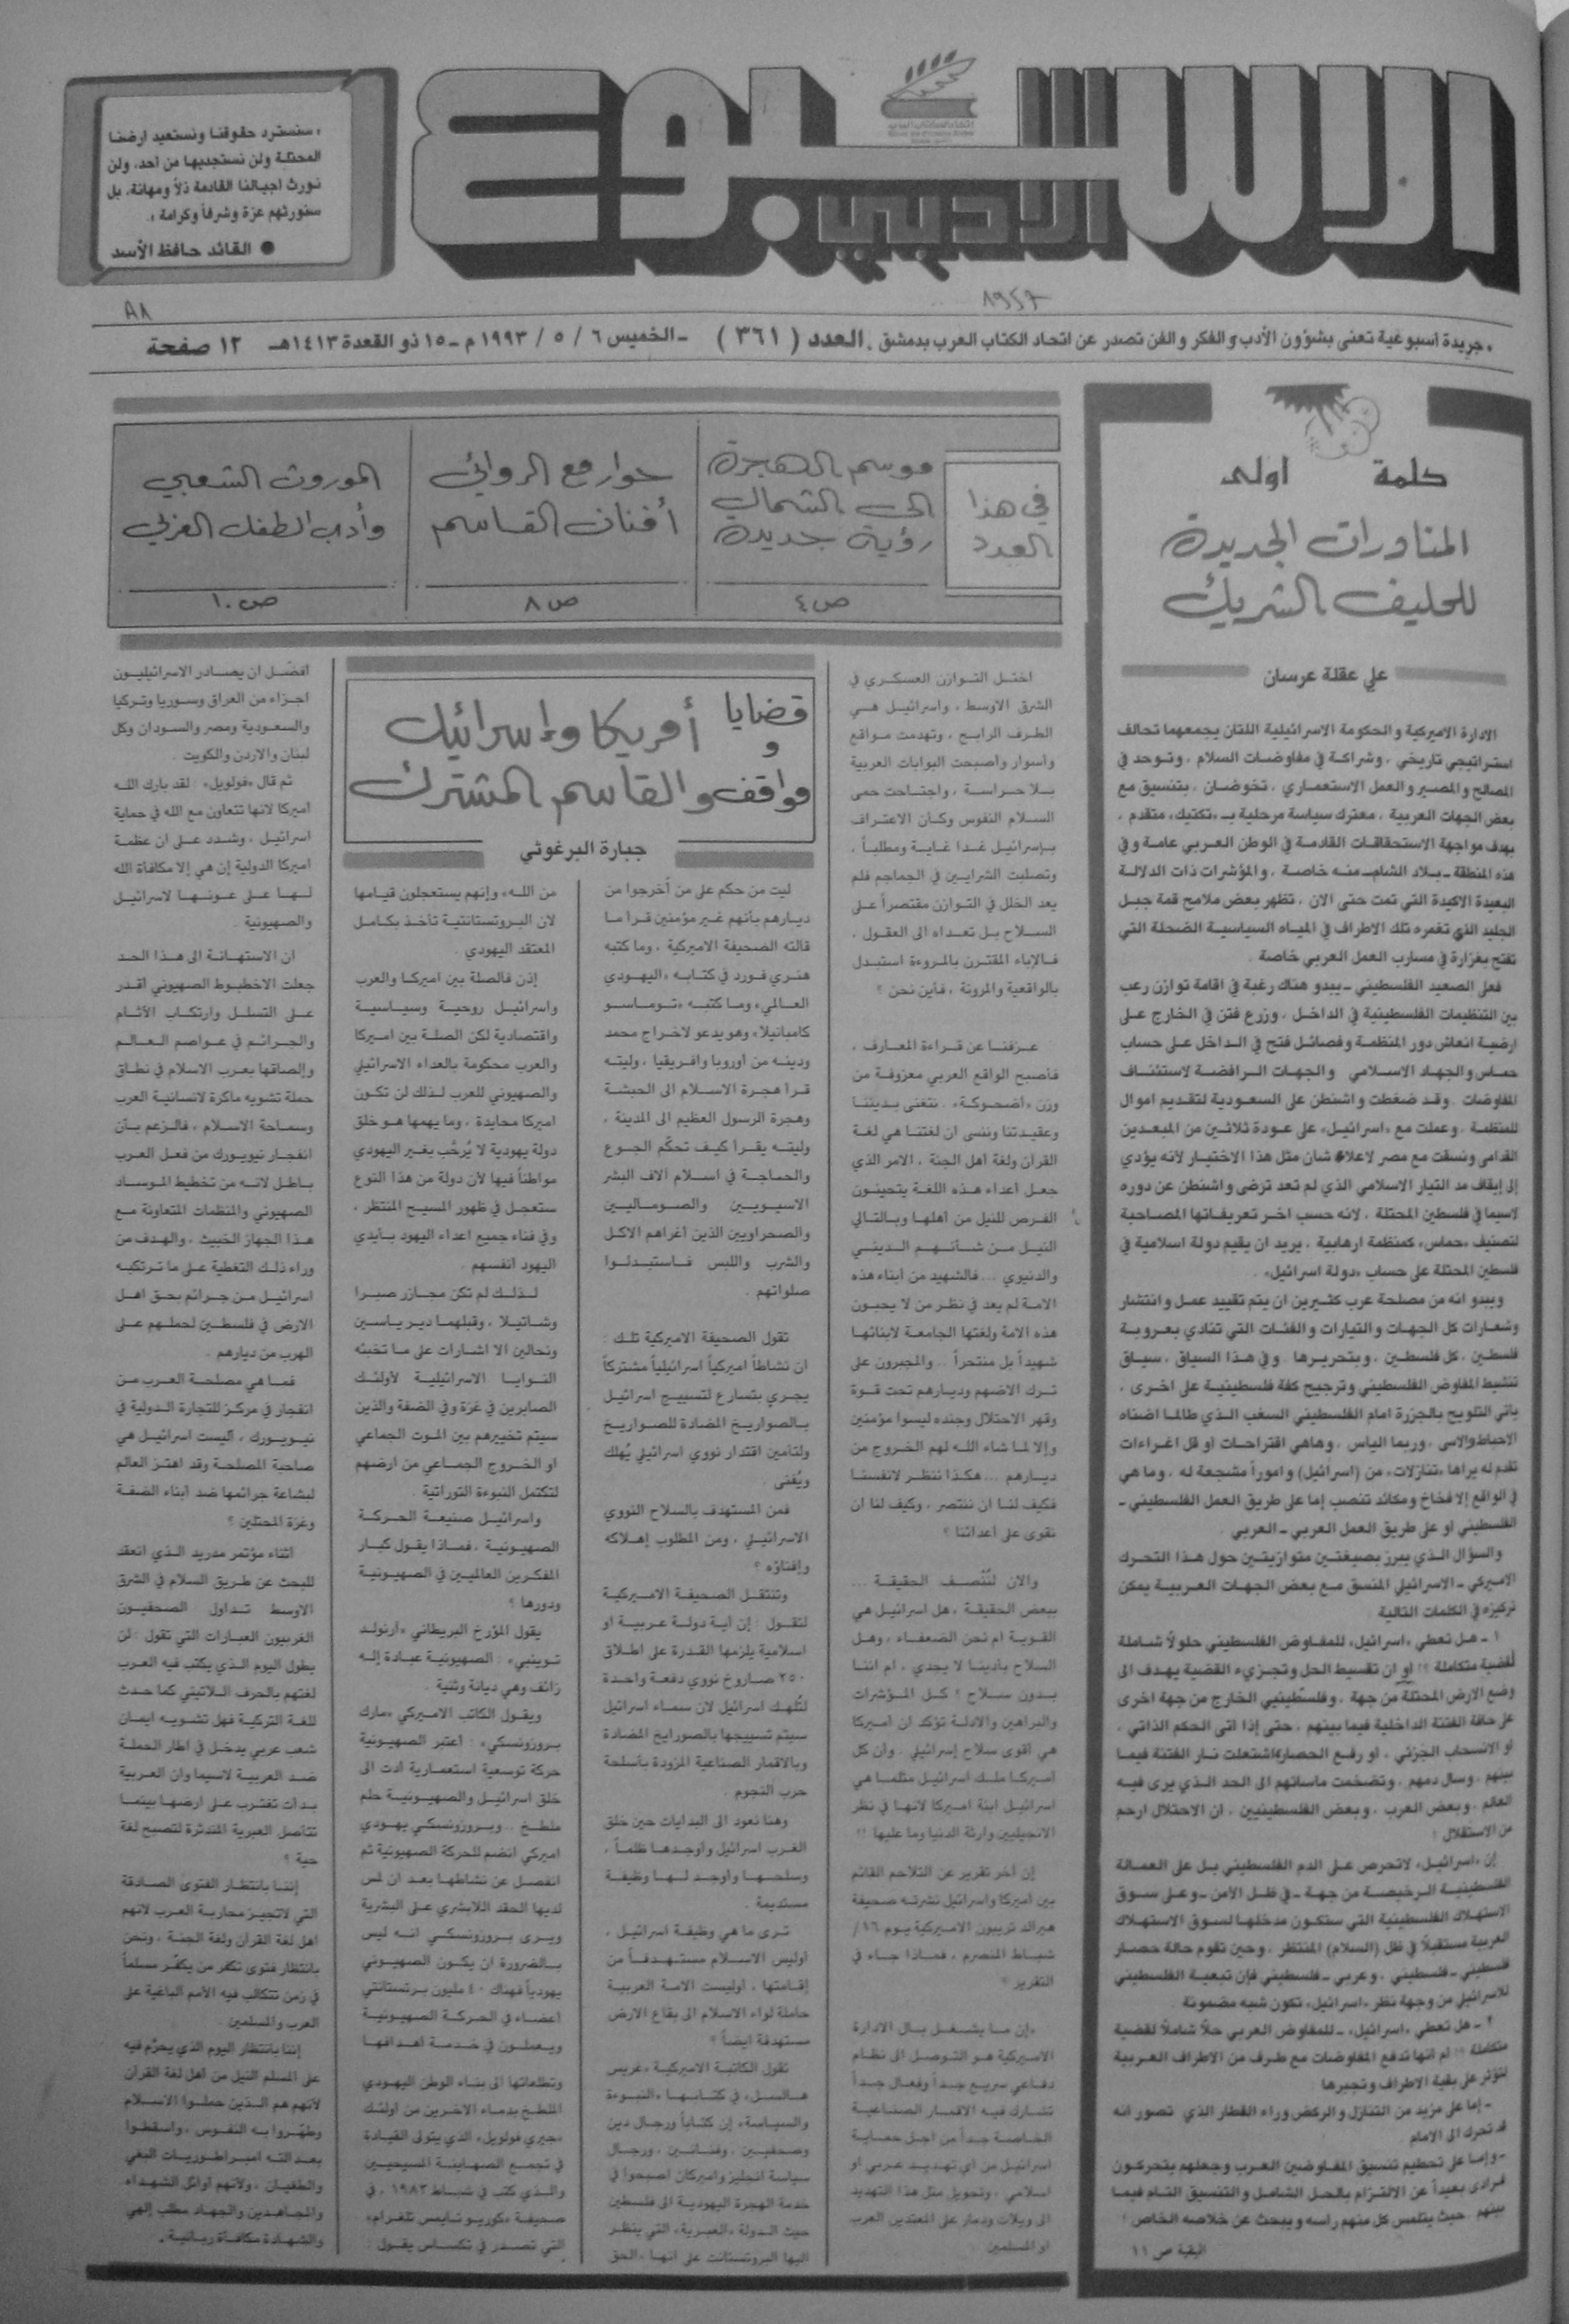 الأسبوع الأدبي
« سنسترد حقوقنا ونستعيد ارضنا
المحتلة ولن نستجديها من أحد، ولن
نورث اجيالنا القادمة ذلاً ومهانة، بل
سنورثهم عزة وشرفاً وكرامة ».
● القائد حافظ الأسد
٨٨
١٩٤٧
• جريدة اسبوعية تعنى بشؤون الأدب والفكر والفن تصدر عن اتحاد الكتاب العرب بدمشق . العدد ( ٣٦١ ) - الخميس ٦ / ٥ / ١٩٩٣ م - ١٥ ذو القعدة ١٤١٣هـ ١٢ صفحة
في هذا
العدد
موسم الهجرة
الى الشمال
رؤية جديدة
ص ٤
حوار مع الروائي
أفنان القاسم
ص ٨
الموروث الشعبي
وأدب الطفل العربي
ص ١٠
كلمة اولى
المناورات الجديدة
للحليف الشريك
علي عقلة عرسان
الادارة الاميركية والحكومة الاسرائيلية اللتان يجمعهما تحالف
استراتيجي تاريخي ، وشراكة في مفاوضات السلام ، وتوحد في
المصالح والمصير والعمل الاستعماري ، تخوضان ، بتنسيق مع
بعض الجهات العربية ، معترك سياسة مرحلية بـ «تكتيك» متقدم ،
بهدف مواجهة الاستحقاقات القادمة في الوطن العربي عامة وفي
هذه المنطقة - بلاد الشام - منه خاصة ، والمؤشرات ذات الدلالة
البعيدة الاكيدة التي تمت حتى الان ، تظهر بعض ملامح قمة جبل
الجليد الذي تغمره تلك الاطراف في المياه السياسية الضحلة التي
تفتح بغزارة في مسارب العمل العربي خاصة .
فعلى الصعيد الفلسطيني - يبدو هناك رغبة في اقامة توازن رعب
بين التنظيمات الفلسطينية في الداخل ، وزرع فتن في الخارج على
ارضية انعاش دور المنظمة وفصائل فتح في الداخل على حساب
حماس والجهاد الاسلامي والجهات الرافضة لاستئناف
المفاوضات . وقد ضغطت واشنطن على السعودية لتقديم اموال
للمنظمة . وعملت مع «اسرائيل» على عودة ثلاثين من المبعدين
القدامى ونسقت مع مصر لاعلاء شأن مثل هذا الاختيار لأنه يؤدي
إلى إيقاف مد التيار الاسلامي الذي لم تعد ترضى واشنطن عن دوره
لاسيما في فلسطين المحتلة ، لأنه حسب اخر تعريفاتها المصاحبة
لتصنيف «حماس» كمنظمة ارهابية . يريد ان يقيم دولة اسلامية في
فلسطين المحتلة على حساب «دولة اسرائيل» .
ويبدو انه من مصلحة عرب كثيرين ان يتم تقييد عمل وانتشار
وشعارات كل الجهات والتيارات والفئات التي تنادي بعروبة
فلسطين ، كل فلسطين ، وبتحريرها . وفي هذا السياق ، سياق
تنشيط المفاوض الفلسطيني وترجيح كفة فلسطينية على اخرى ،
يأتي التلويح بالجزرة امام الفلسطيني السغب الذي طالما اضناه
الاحباط والاسى ، وربما اليأس ، وهاهي اقتراحات او قل اغراءات
تقدم له يراها «تنازلات» من (اسرائيل) وأموراً مشجعة له ، وما هي
في الواقع إلا فخاخ ومكائد تنصب إما على طريق العمل الفلسطيني -
الفلسطيني او على طريق العمل العربي - العربي .
والسؤال الذي يبرز بصيغتين متوازيتين حول هذا التحرك
الاميركي - الاسرائيلي المنسق مع بعض الجهات العربية يمكن
تركيزه في الكلمات التالية
١ - هل تعطي «اسرائيل» للمفاوض الفلسطيني حلولاً شاملة
لقضية متكاملة ؟! او ان تقسيط الحل وتجزيء القضية يهدف الى
وضع الارض المحتلة من جهة ، وفلسطينيي الخارج من جهة اخرى
على حافة الفتنة الداخلية فيما بينهم ، حتى إذا اتى الحكم الذاتي ،
او الانسحاب الجزئي ، او رفع الحصار، اشتعلت نار الفتنة فيما
بينهم ، وسال دمهم ، وتضخمت مأساتهم الى الحد الذي يرى فيه
العالم ، وبعض العرب ، وبعض الفلسطينيين ، ان الاحتلال ارحم
من الاستقلال !
إن «اسرائيل» لاتحرص على الدم الفلسطيني بل على العمالة
الفلسطينية الرخيصة من جهة - في ظل الأمن - وعلى سوق
الاستهلاك الفلسطينية التي ستكون مدخلها لسوق الاستهلاك
العربية مستقبلاً في ظل (السلام) المنتظر ، وحين تقوم حالة حصار
فلسطيني - فلسطيني ، وعربي - فلسطيني فإن تبعية الفلسطيني
للاسرائيلي من وجهة نظر «اسرائيل» تكون شبه مضمونة .
٢ - هل تعطي «اسرائيل» - للمفاوض العربي حلاً شاملاً لقضية
متكاملة ؟! لم انها تدفع المفاوضات مع طرف من الاطراف العربية
لتؤثر على بقية الاطراف وتجبرها :
- إما على مزيد من التنازل والركض وراء القطار الذي تصور انه
قد تحرك الى الامام
- وإما على تحطيم تنسيق المفاوضين العرب وجعلهم يتحركون
فرادى بعيداً عن الالتزام بالحل الشامل والتنسيق التام فيما
بينهم . حيث يتلمس كل منهم رأسه ويبحث عن خلاصه الخاص !
البقية ص ١١
قضايا
و
مواقف
أمريكا وإسرائيل
والقاسم المشترك
جبارة البرغوثي
اختل التوازن العسكري في
الشرق الاوسط ، واسرائيل هي
الطرف الرابح ، وتهدمت مواقع
وأسوار وأصبحت البوابات العربية
بلا حراسة ، واجتاحت حمى
السلام النفوس وكان الاعتراف
بإسرائيل غدا غاية ومطلباً ،
وتصلبت الشرايين في الجماجم فلم
يعد الخلل في التوازن مقتصراً على
السلاح بل تعداه الى العقول ،
فالإباء المقترن بالمروءة استبدل
بالواقعية والمرونة ، فأين نحن ؟
عزفنا عن قراءة المعارف ،
فأصبح الواقع العربي معزوفة من
وزن «أضحوكة» . نتغنى بديننا
وعقيدتنا وننسى ان لغتنا هي لغة
القرآن ولغة أهل الجنة ، الامر الذي
جعل أعداء هذه اللغة يتحينون
الفرص للنيل من أهلها وبالتالي
النيل من شأنهم الديني
والدنيوي ... فالشهيد من أبناء هذه
الامة لم يعد في نظر من لا يحبون
هذه الامة ولغتها الجامعة لأبنائها
شهيداً بل منتحراً .. والمجبرون على
ترك ارضهم وديارهم تحت قوة
وقهر الاحتلال وجنده ليسوا مؤمنين
وإلا لما شاء الله لهم الخروج من
ديارهم ... هكذا ننظر لانفسنا
فكيف لنا ان ننتصر ، وكيف لنا ان
نقوى على أعدائنا ؟
والان لنُنْصف الحقيقة ...
ببعض الحقيقة ، هل اسرائيل هي
القوية ام نحن الضعفاء ، وهل
السلاح بأدينا لا يجدي ، ام اننا
بدون سلاح ؟ كل المؤشرات
والبراهين والادلة تؤكد ان اميركا
هي أقوى سلاح إسرائيلي . وان كل
أميركا ملك اسرائيل مثلما هي
اسرائيل ابنة اميركا لانها في نظر
الانجيليين وارثة الدنيا وما عليها !!
إن آخر تقرير عن التلاحم القائم
بين اميركا واسرائيل نشرته صحيفة
هيرالد تريبون الاميركية يوم ١٦/
شباط المنصرم ، فماذا جاء في
التقرير ؟
«إن ما يشغل بال الادارة
الاميركية هو التوصل الى نظام
دفاعي سريع جداً وفعال جداً
تشارك فيه الاقمار الصناعية
الخاصة جداً من اجل حماية
اسرائيل من أي تهديد عربي او
اسلامي ، وتحويل مثل هذا التهديد
الى ويلات ودمار على المعتدين العرب
او المسلمين .
ليت من حكم على من أخرجوا من
ديارهم بأنهم غير مؤمنين قرأ ما
قالته الصحيفة الاميركية ، وما كتبه
هنري فورد في كتابه «اليهودي
العالمي» وما كتبه «توماسو
كامبانيلا» وهو يدعو لاخراج محمد
ودينه من أوروبا وافريقيا ، وليته
قرأ هجرة الاسلام الى الحبشة
وهجرة الرسول العظيم الى المدينة ،
وليته يقرأ كيف تحكّم الجوع
والحماجة في اسلام آلاف البشر
الاسيويين والصوماليين
والصحراويين الذين أغراهم الاكل
والشرب واللبس فاستبدلوا
صلواتهم .
تقول الصحيفة الاميركية تلك :
ان نشاطاً اميركياً اسرائيلياً مشتركاً
يجري بتسارع لتسييج اسرائيل
بالصواريخ المضادة للصواريخ
ولتأمين اقتدار نووي اسرائيلي يُهلك
ويُفنى .
فمن المستهدف بالسلاح النووي
الاسرائيلي ، ومن المطلوب إهلاكه
وإفناؤه ؟
وتنتقل الصحيفة الاميركية
لتقول : إن أية دولة عربية او
اسلامية يلزمها القدرة على اطلاق
٢٥٠ صاروخ نووي دفعة واحدة
لتُهلك اسرائيل لان سماء اسرائيل
سيتم تسييجها بالصورايخ المضادة
وبالاقمار الصناعية المزودة بأسلحة
حرب النجوم .
وهنا نعود الى البدايات حين خلق
الغرب اسرائيل وأوجدها ظلماً ،
وسلحها وأوجد لها وظيفة
مستديمة .
ترى ما هي وظيفة اسرائيل ،
أوليس الاسلام مستهدفاً من
إقامتها ، أوليست الامة العربية
حاملة لواء الاسلام الى بقاع الارض
مستهدفة ايضاً ؟
تقول الكاتبة الاميركية «غريس
هالسل» في كتابها «النبوءة
والسياسة» إن كتّاباً ورجال دين
وصحفيين ، وفنانين ، ورجال
سياسة انجليز واميركان أصبحوا في
خدمة الهجرة اليهودية الى فلسطين
حيث الدولة «العبرية» التي ينظر
اليها البروتستانت على انها ، الحق
من الله» وإنهم يستعجلون قيامها
لان البروتستانتية تأخذ بكامل
المعتقد اليهودي .
إذن فالصلة بين اميركا والعرب
واسرائيل روحية وسياسية
واقتصادية لكن الصلة بين اميركا
والعرب محكومة بالعداء الاسرائيلي
والصهيوني للعرب لذلك لن تكون
اميركا محايدة ، وما يهمها هو خلق
دولة يهودية لا يُرحَّب بغير اليهودي
مواطناً فيها لأن دولة من هذا النوع
ستعجل في ظهور المسيح المنتظر ،
وفي فناء جميع اعداء اليهود بأيدي
اليهود أنفسهم .
لذلك لم تكن مجازر صبرا
وشاتيلا ، وقبلهما دير ياسين
ونحالين الا اشارات على ما تخبئه
النوايا الاسرائيلية لأولئك
الصابرين في غزة وفي الضفة والذين
سيتم تخييرهم بين الموت الجماعي
او الخروج الجماعي من ارضهم
لتكتمل النبوءة التوراتية .
واسرائيل صنيعة الحركة
الصهيونية ، فماذا يقول كبار
المفكرين العالميين في الصهيونية
ودورها ؟
يقول المؤرخ البريطاني «أرنولد
توينبي» : الصهيونية عبادة إله
زائف وهي ديانة وثنية .
ويقول الكاتب الاميركي «مارك
بروزونسكي» : أعتبر الصهيونية
حركة توسعية استعمارية أدت الى
خلق اسرائيل والصهيونية حلم
ملطخ .. وبروزونسكي يهودي
اميركي انضم للحركة الصهيونية ثم
انفصل عن نشاطها بعد ان لمس
لديها الحقد اللابشري على البشرية
ويرى بروزونسكي انه ليس
بالضرورة ان يكون الصهيوني
يهودياً فهناك ٤٠ مليون برتستانتي
أعضاء في الحركة الصهيونية
ويعملون في خدمة أهدافها
وتطلعاتها الى بناء الوطن اليهودي
الملطخ بدماء الآخرين من أولئك
«جيري فولويل» الذي يتولى القيادة
في تجمع الصهاينة المسيحيين
والذي كتب في شباط ١٩٨٣ ، في
صحيفة «كوريو تايمس تلغرام»
التي تصدر في تكساس يقول :
أفضّل ان يصادر الاسرائيليون
اجزاء من العراق وسوريا وتركيا
والسعودية ومصر والسودان وكل
لبنان والاردن والكويت .
ثم قال «فولويل» : لقد بارك الله
أميركا لانها تتعاون مع الله في حماية
اسرائيل ، وشدد على ان عظمة
اميركا الدولية إن هي إلا مكافأة الله
لها على عونها لاسرائيل
والصهيونية .
ان الاستهانة الى هذا الحد
جعلت الاخطبوط الصهيوني أقدر
على التسلل وارتكاب الآثام
والجرائم في عواصم العالم
وإلصاقها بعرب الاسلام في نطاق
حملة تشويه ماكرة لانسانية العرب
وسماحة الاسلام ، فالزعم بأن
انفجار نيويورك من فعل العرب
باطل لانه من تخطيط الموساد
الصهيوني والمنظمات المتعاونة مع
هذا الجهاز الخبيث ، والهدف من
وراء ذلك التغطية على ما ترتكبه
اسرائيل من جرائم بحق اهل
الارض في فلسطين لحملهم على
الهرب من ديارهم .
فما هي مصلحة العرب من
انفجار في مركز للتجارة الدولية في
نيويورك ، أليست اسرائيل هي
صاحبة المصلحة وقد اهتز العالم
لبشاعة جرائمها ضد أبناء الضفة
وغزة المحتلين ؟
أثناء مؤتمر مدريد الذي انعقد
للبحث عن طريق السلام في الشرق
الاوسط تداول الصحفيون
الغربيون العبارات التي تقول : لن
يطول اليوم الذي يكتب فيه العرب
لغتهم بالحرف اللاتيني كما حدث
للغة التركية فهل تشويه ايمان
شعب عربي يدخل في اطار الحملة
ضد العربية لاسيما وان العربية
بدأت تغترب على ارضها بينما
تتأصل العبرية المندثرة لتصبح لغة
حية ؟
إننا بانتظار الفتوى الصادقة
التي لاتجيز محاربة العرب لانهم
أهل لغة القرآن ولغة الجنة ، ونحن
بانتظار فتوى تكفر من يكفّر مسلماً
في زمن تتكالب فيه الأمم الباغية على
العرب والمسلمين .
إننا بانتظار اليوم الذي يحرّم فيه
على المسلم النيل من أهل لغة القرآن
لانهم هم الذين حملوا الاسلام
وطهّروا به النفوس ، واسقطوا
بعدالته امبراطوريات البغي
والطغيان ، ولأنهم أوائل الشهداء
والمجاهدين والجهاد مطلب إلهي
والشهادة مكافأة ربانية .